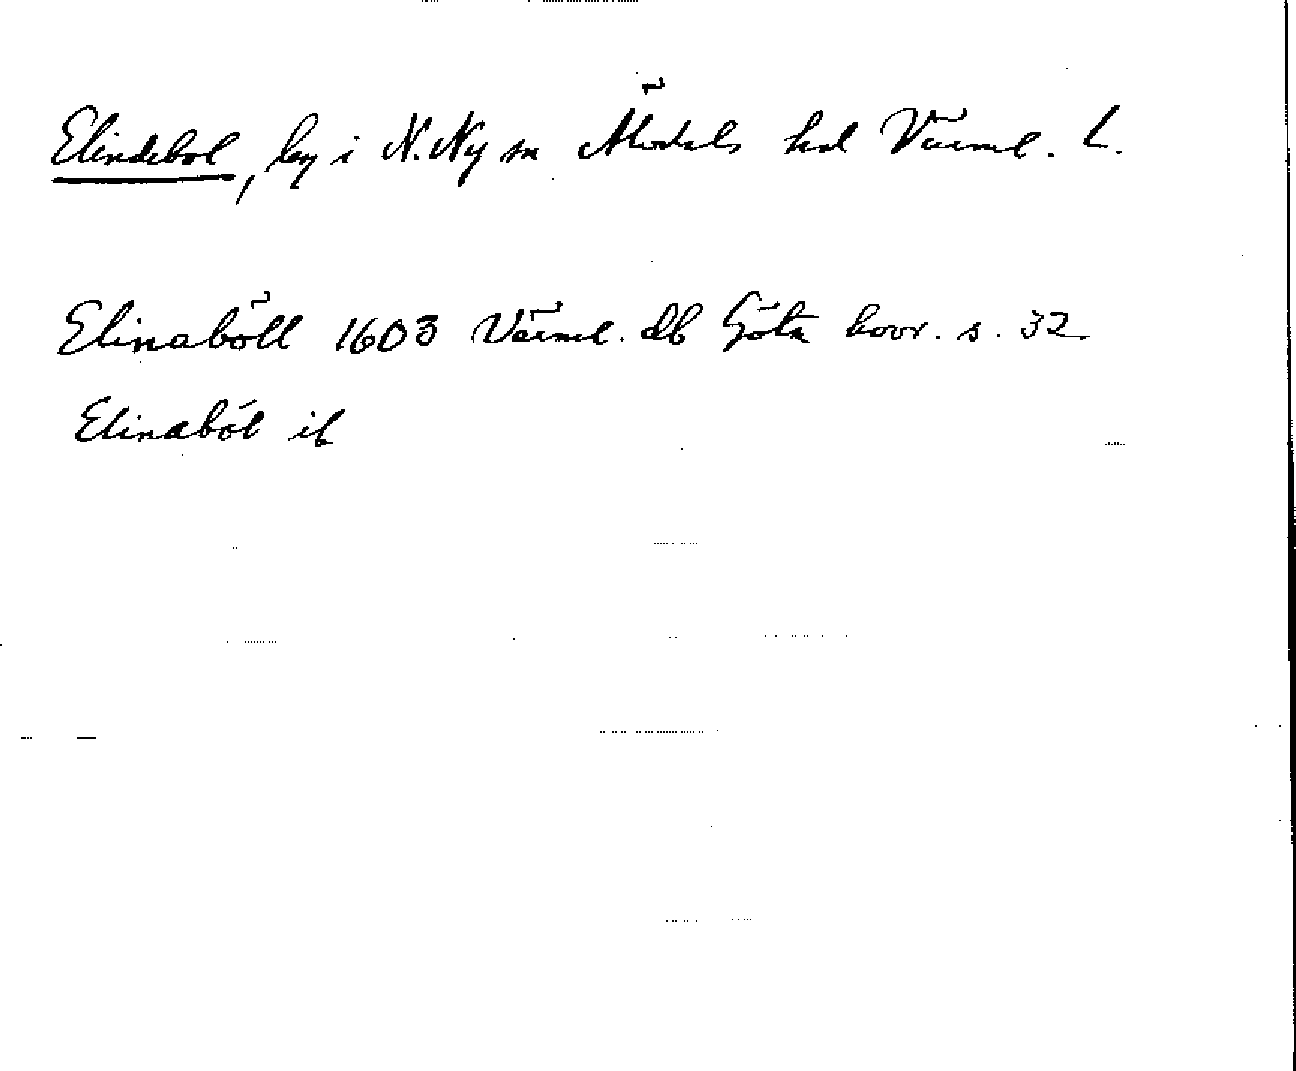 Elindebol, by i N. Ny sn Älvdals hd Värml. L.
Elinaböll 1603 Värml. db Göta hovr. s. 32
Elinaböl ib